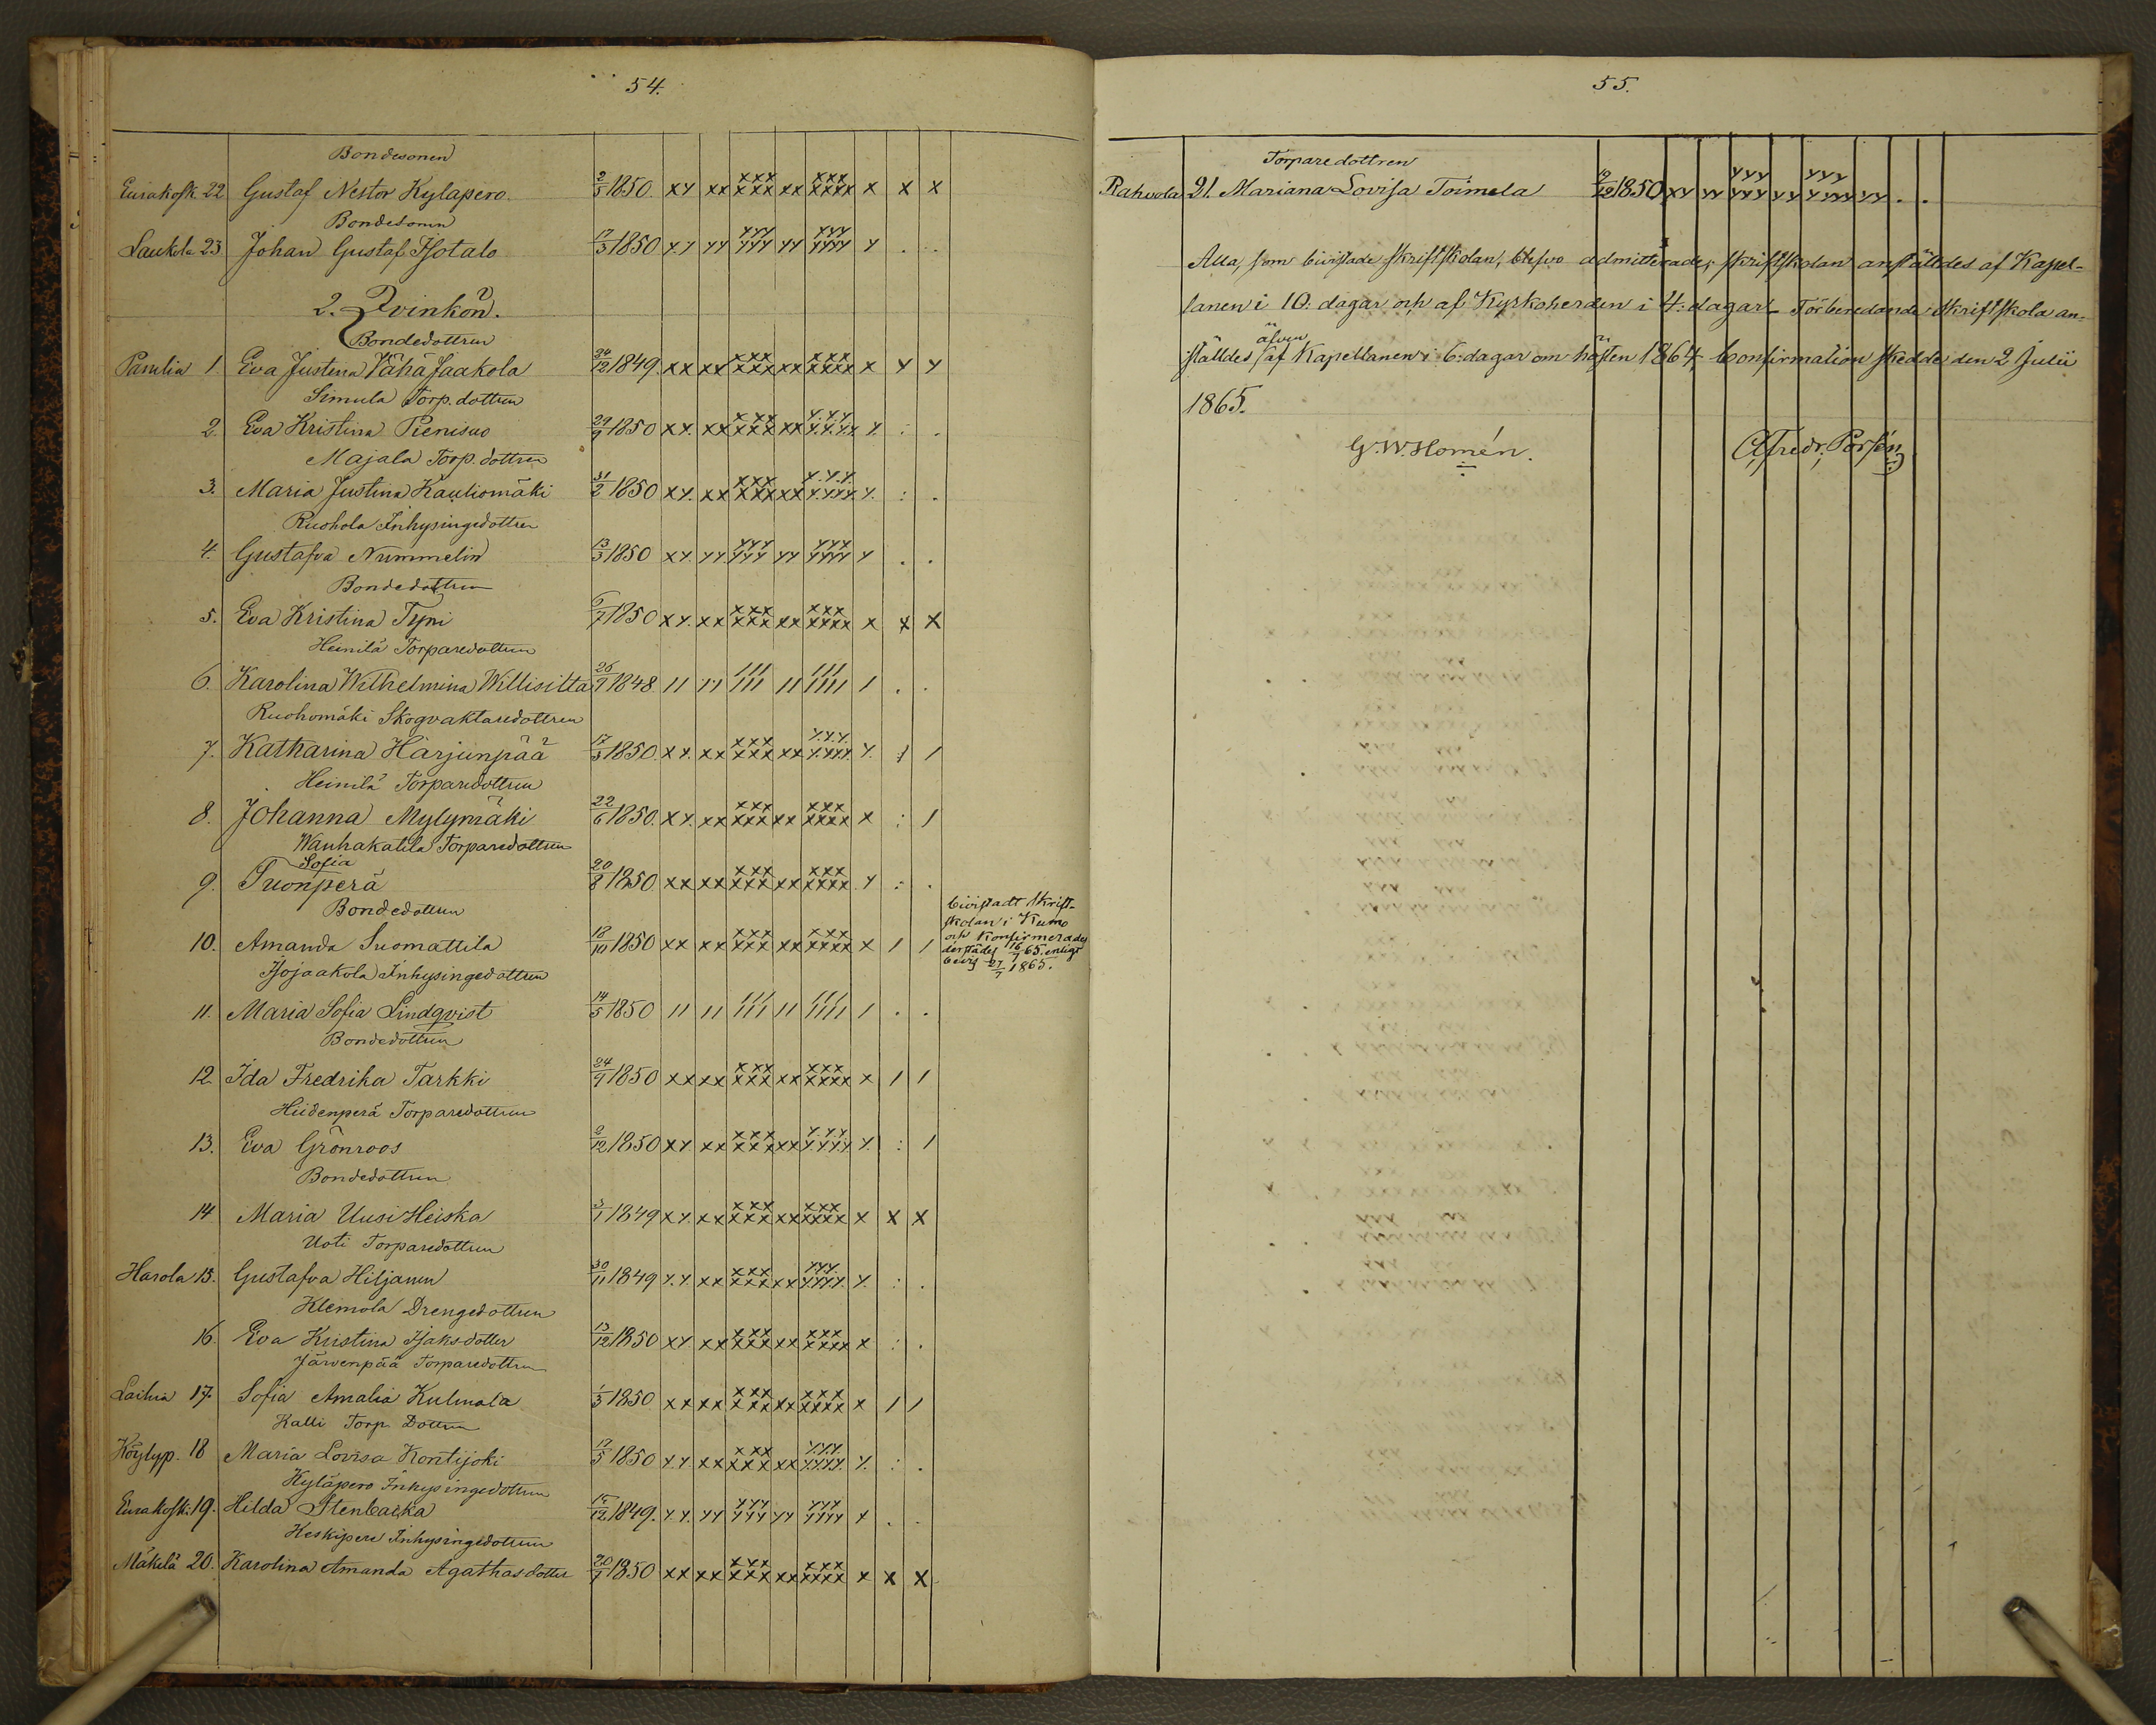 54.
Bondesonen
Eurakosk. 22 Gustaf Nestor Kylapero. 2/5 1850. xy xx xxx xxx xx xxx xxxx x x x
Bondesonen
Laukola 23. Johan Gustaf Isotalo 17/3 1850 yy yy yyy yyy yy yyy yyyy y . .
2. Qvinkön.
Bondedottren
Panelia 1. Eva Justina VähäJaakola 30/12 1849. xx xx xxx xxx xx xxx xxxx x y y
Simula Torp. dottren
2. Eva Kristina Pienisuo 29/9 1850 xy. xx xxx xxx xx yyy yyyy y. : .
Majala Torp. dottren
3. Maria Justina Kauliomäki 1850 xy. xx xxx xxx xx yyy yyyy y. : .
Ruohola Inhysingedottren
4. Gustafva Nummelin 13/3 1850 xy. yy. yyy yyy yy yyy yyyy y . .
Bondedottren
5. Eva Kristina Typi 6/7 1850 xy. xx xxx xxx xx xxx xxxx x x x
Heinilä Torparedottren
6. Karolina Wilhelmina Willisilta 26/9 1848. 11 11 111 111 11 111 1111 1 . .
Ruohomäki Skogvaktaredottren
7. Katharina Harjunpää 17/3 1850. xy. xx xxx xxx xx yyy yyyy y. 1 1
Heinilä Torparedottren
8. Johanna Mylymäki 22/6 1850. xy. xx xxx xxx xx xxx xxxx x : 1
Wanhakatila Torparedottren
Sofia
9. Suonperä 20/8 1850 xx xx xxx xxx xx xxx xxxx y : .
Bondedottren
10. Amanda Suomattila 18/10 1850 xx xx xxx xxx xx xxx xxxx x 1 1
bivistadt Skrift-
skolan i Kumo
och Konfirmerades
derstädes 16/7 65. enligt
bevis 27/7 1865.
Isojaakola Inhysingedottren
11. Maria Sofia Lindqvist 14/5 1850 11 11 111 111 11 111 1111 1 . .
Bondedottren
12. Ida Fredrika Tarkki 24/9 1850 xx xx xxx xxx xx xxx xxxx x 1 1
Hiidenperä Torparedottren
13. Eva Grönroos 2/12 1850 xy. xx xxx xxx xx yyy yyyy y. : 1
Bondedottren
14. Maria UusiHeiska 3/1 1849 xy. xx xxx xxx xx xxx xxxx x x x
Uoti Torparedottren
Harola 15. Gustafva Hiljanen 30/11 1849 y.y xx xxx xxx xx yyy yyyy y. : .
Klemola Drengedottren
16. Eva Kristina Isaksdotter 13/12 1850 xy. xx xxx xxx xx xxx xxxx x : .
Järvenpää Torparedottren
Laihia 17. Sofia Amalia Kulmala 1/3 1850 xx xx xxx xxx xx xxx xxxx x 1 1
Kalli Torp. Dottren
Köylyp. 18 Maria Lovisa Kontijoki 17/5 1850 y.y. xx xxx xxx xx yyy yyyy y. : .
Kyläpero Inhysingedottren
Eurakoski. 19. Hilda Stenbacka 15/12 1849. y.y. yy yyy yyy yy yyy yyyy y . .
Keskipere Inhysingedottren
Mäkelä 20. Karolina Amanda Agathasdotter 20/7 1850 xx xx xxx xxx xx xxx xxxx x x x
55.
Torparedottren
Rahvola 21. Mariana Lovisa Toimela 9/12 1850 xy yy yyy yyy yy yyy yyyy y . .
Alla, som bivistade skriftskolan, blefvo admitterade; skriftskolan anställdes af Kapel-
lanen i 10. dagar och af Kyrkoherden i 4. dagar. Förberedande Skriftskola an-
ställdes äfven af Kapellanen i 6. dagar om hösten 1864. Confirmation skedde den 2 Julii
1865.
G. W. Homén. Alfredr. Porsén.